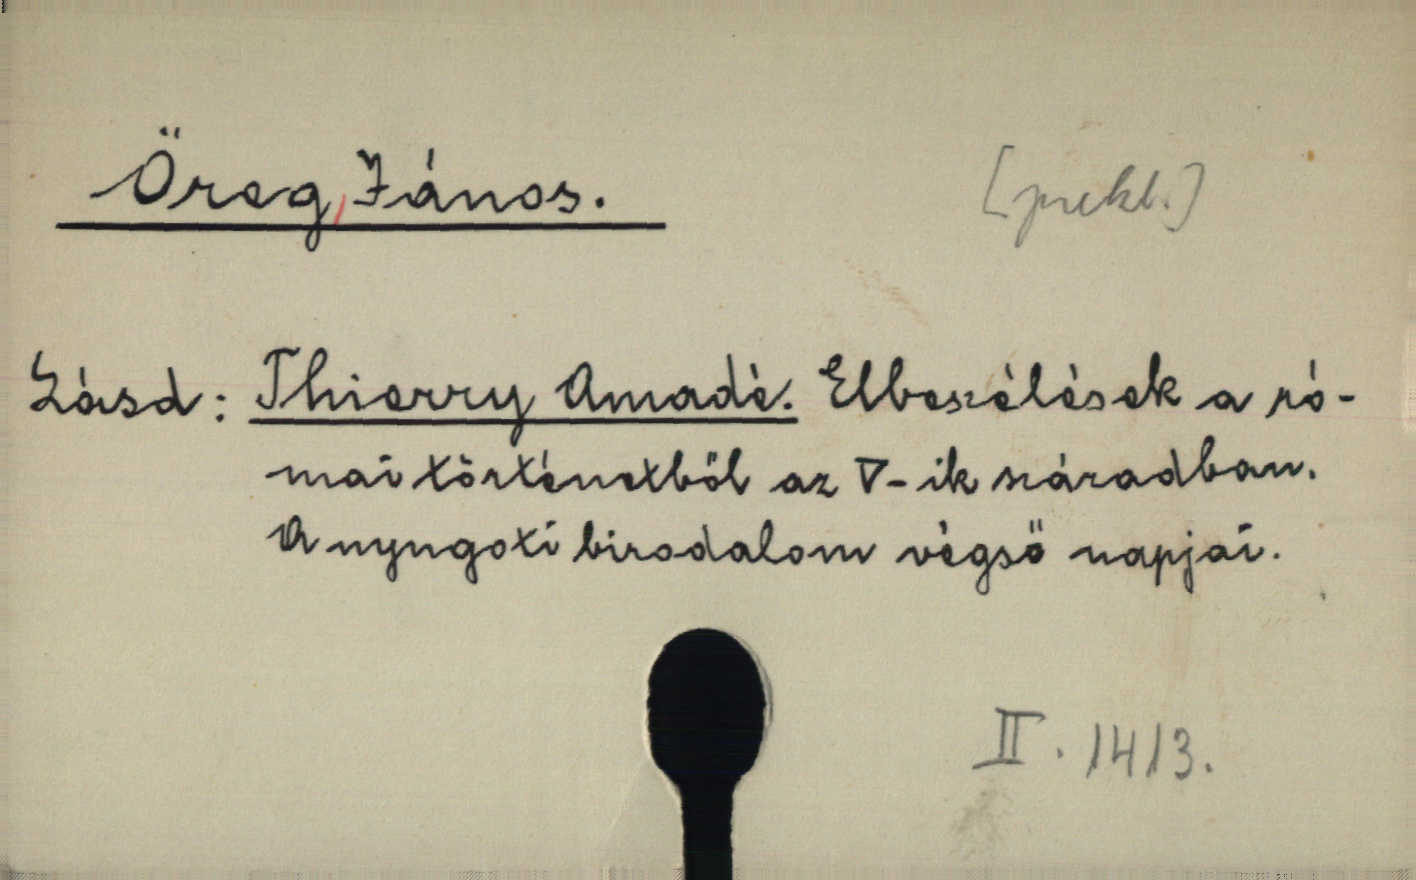 Öreg, János.
[prekl.]
Lásd: Thierry Amadé. Elbeszélések a ró-
mai történetből az V-ik században.
A nyugoti birodalom végső napjai.
II. 1413.